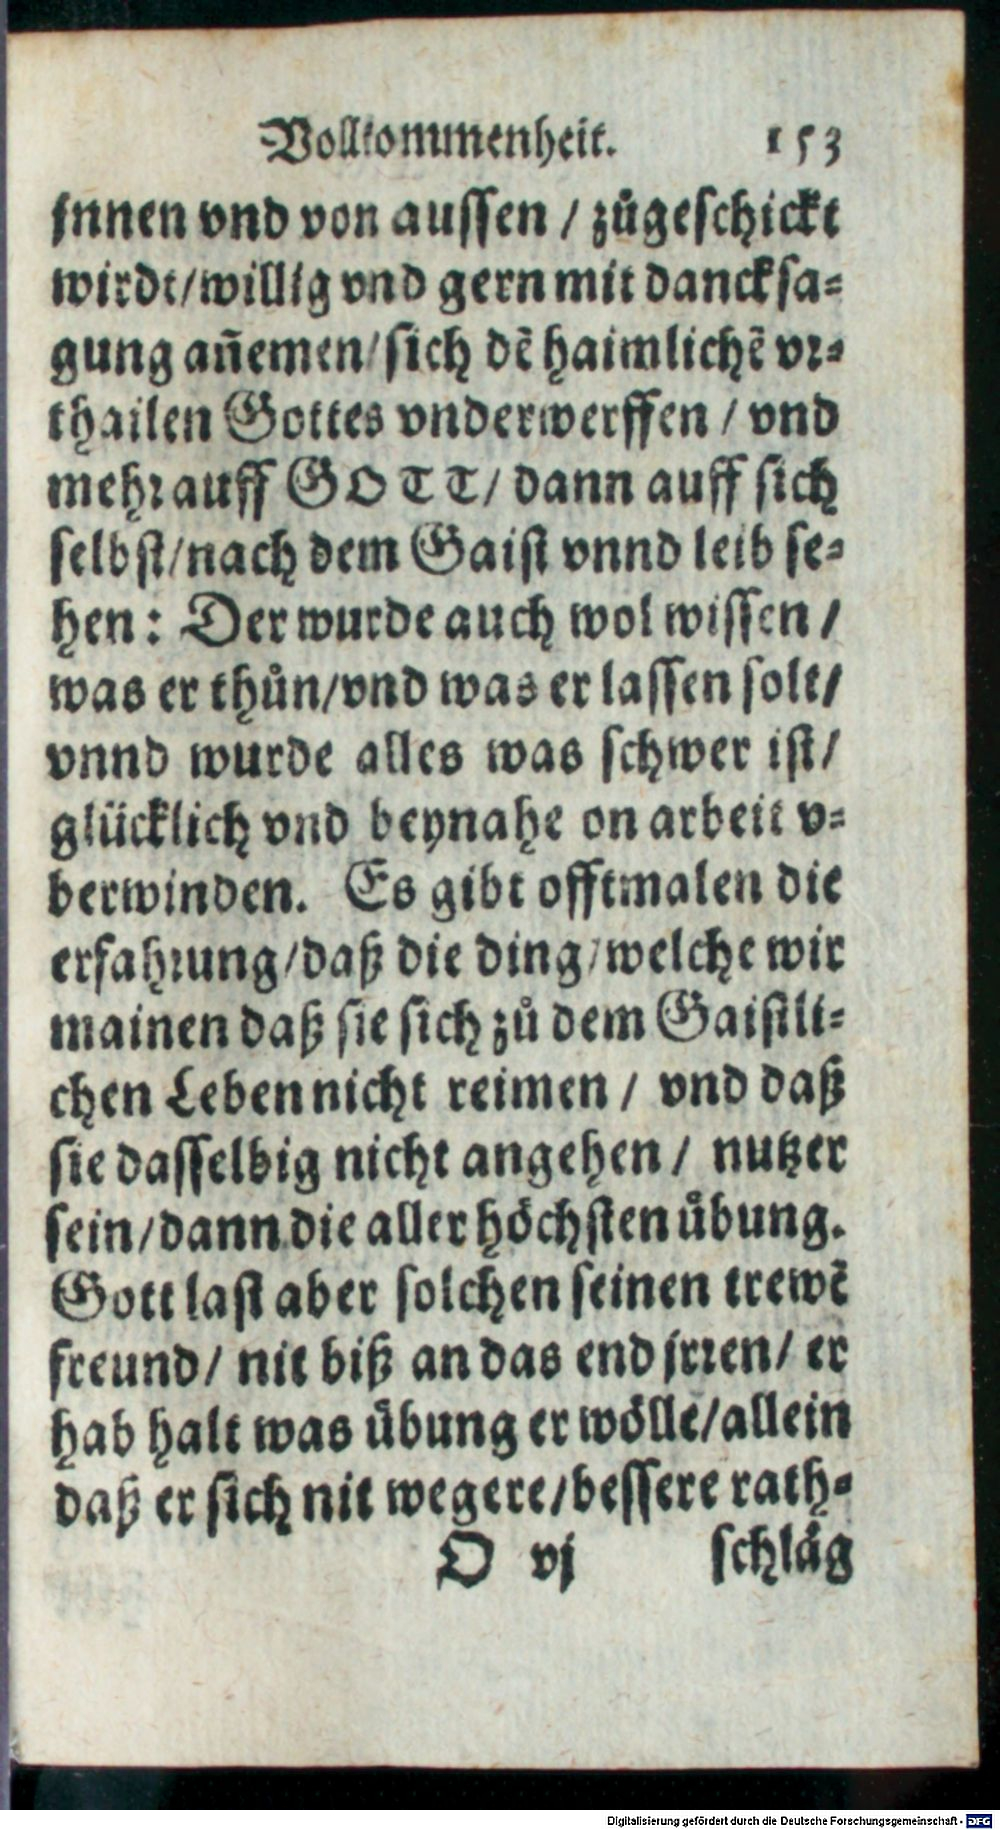 Vollkommenheit. 153
jnnen vnd von aussen / zůgeschickt
wirdt/willig vnd gern mit dancksa⸗
gung an̄emen/sich dē haimlichē vr⸗
thailen Gottes vnderwerffen / vnd
mehr auff GOTT/ dann auff sich
selbst/nach dem Gaist vnnd leib se⸗
hen: Der wurde auch wol wissen /
was er thůn/vnd was er lassen solt/
vnnd wurde alles was schwer ist/
glücklich vnd beynahe on arbeit v⸗
berwinden. Es gibt offtmalen die
erfahrung/daß die ding/welche wir
mainen daß sie sich zů dem Gaistli⸗
chen Leben nicht reimen / vnd daß
sie dasselbig nicht angehen / nutzer
sein/dann die aller höchsten übung.
Gott last aber solchen seinen trewē
freund/ nit biß an das end jrren/ er
hab halt was übung er wölle/allein
daß er sich nit wegere/bessere rath⸗
O vj schläg
Digitalisierung gefördert durch die Deutsche Forschungsgemeinschaft - DFG